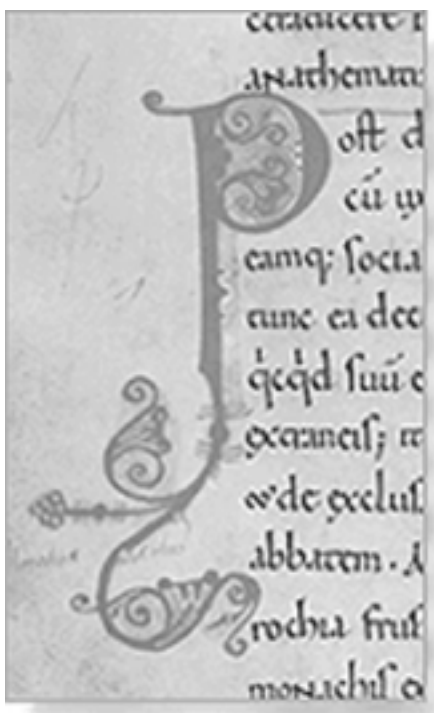 anathema
Poſt d
cū
eamq; ſocia
tunc ea dec
qͥcqͥd ſuū
extraneiſ;
de excluſ
abbatem. A
rochia fruſ
monachiſ